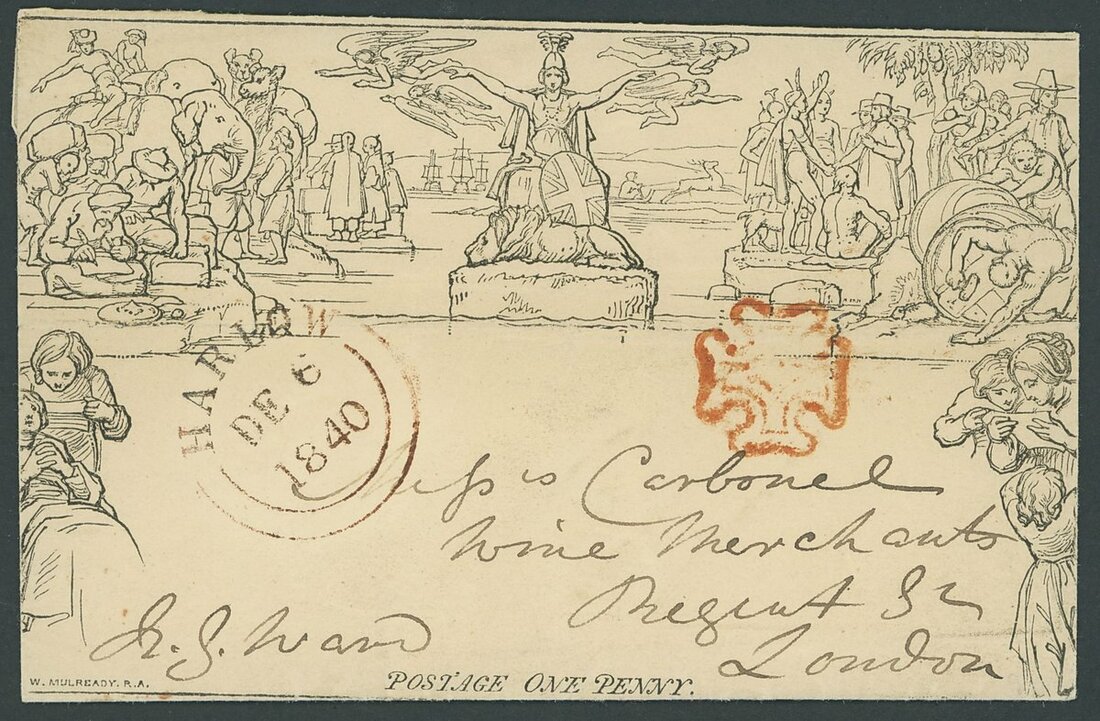 HARLOW
DE 6
1840
Mess rs Carbonel
Wine Merchants
Regent St
London
H. G. Ward
W. MULREADY. R.A.
POSTAGE ONE PENNY.